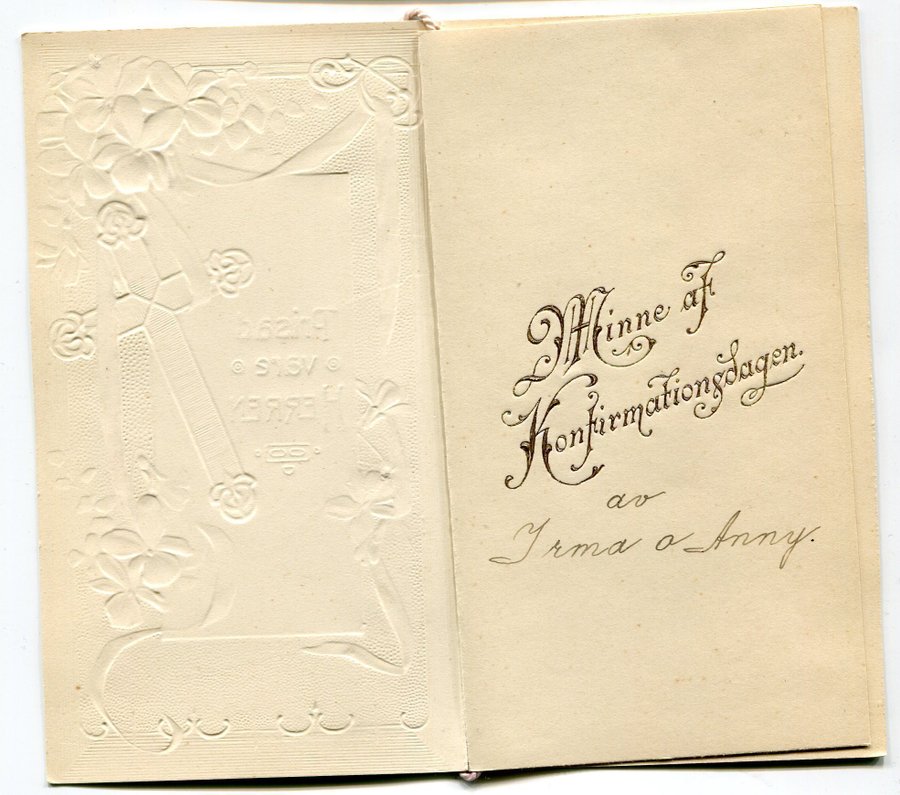 Prisad
vare
HERREN
Minne af
Konfirmationsdagen.
av
Irma o Anny.